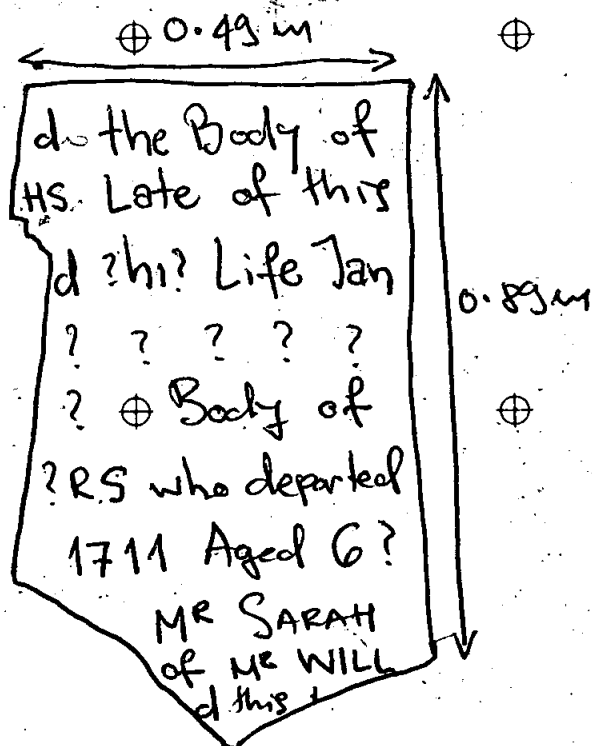 0.49 m
d the Body of
HS. Late of this
d ?hi? Life Jan
0.89 m
? ? ? ? ?
? Body of
?RS who departed
1711 Aged 6?
MR SARAH
of MR WILL
d this